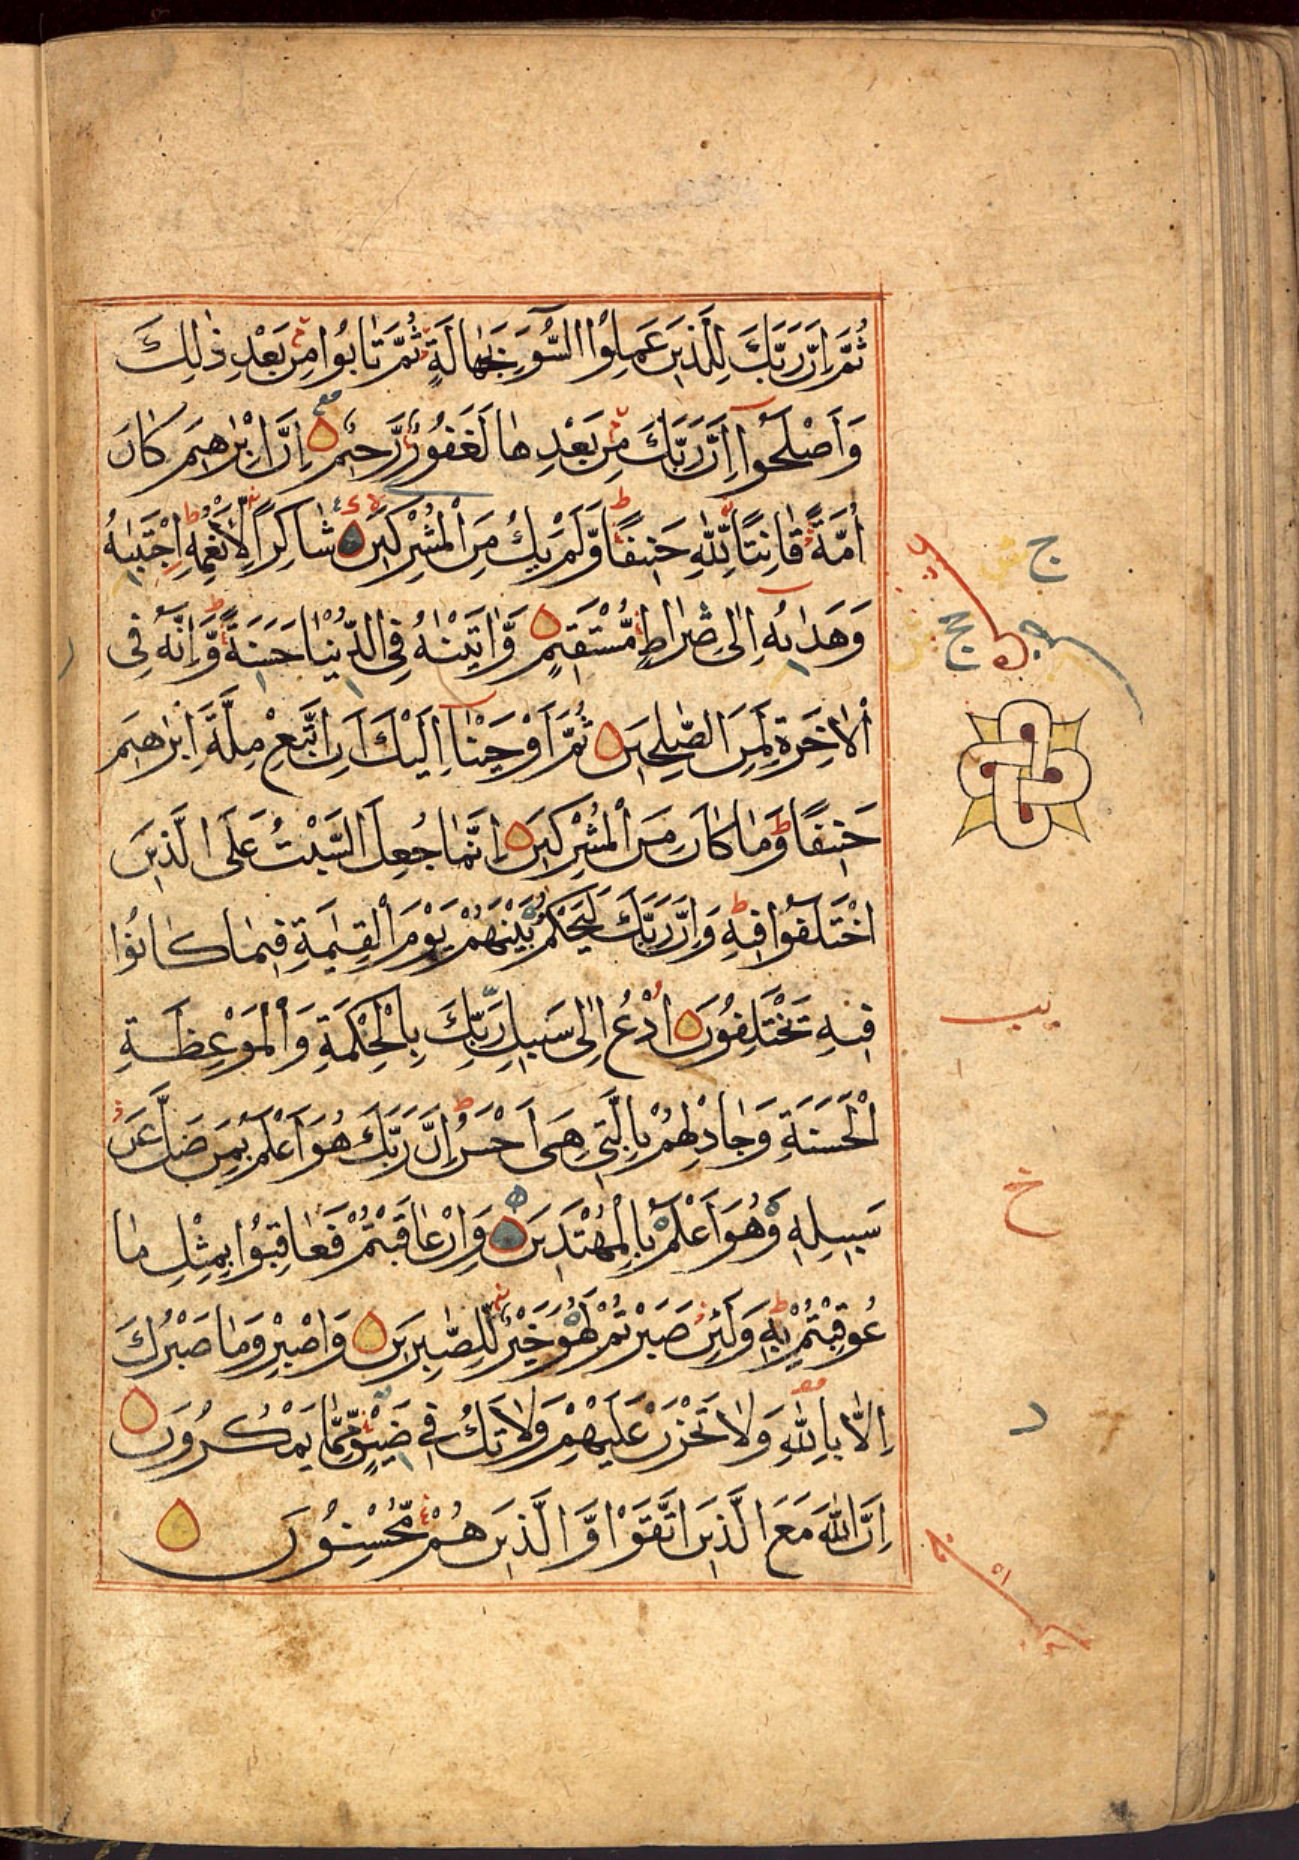 ثُمَّ اِنَّ رَبَّكَ لِلَّذِينَ عَمِلُوا السُّوءَ بِجَهَالَةٍ ثُمَّ تَابُوا مِنْ بَعْدِ ذٰلِكَ
وَاَصْلَحُوا اِنَّ رَبَّكَ مِنْ بَعْدِهَا لَغَفُورٌ رَّحِيمٌ اِنَّ اِبْرٰهِيمَ كَانَ
اُمَّةً قَانِتًا لِّلّٰهِ حَنِيفًا وَّلَمْ يَكُ مِنَ الْمُشْرِكِينَ شَاكِرًا لِّاَنْعُمِهِ اِجْتَبٰيهُ
وَهَدٰيهُ اِلٰى صِرَاطٍ مُّسْتَقِيمٍ وَّاٰتَيْنٰهُ فِى الدُّنْيَا حَسَنَةً وَّاِنَّهُ فِى
الْاٰخِرَةِ لَمِنَ الصّٰلِحِينَ ثُمَّ اَوْحَيْنَا اِلَيْكَ اَنِ اتَّبِعْ مِلَّةَ اِبْرٰهِيمَ
حَنِيفًا وَّمَا كَانَ مِنَ الْمُشْرِكِينَ اِنَّمَا جُعِلَ السَّبْتُ عَلَى الَّذِينَ
اخْتَلَفُوا فِيهِ وَاِنَّ رَبَّكَ لَيَحْكُمُ بَيْنَهُمْ يَوْمَ الْقِيٰمَةِ فِيمَا كَانُوا
فِيهِ يَخْتَلِفُونَ اُدْعُ اِلٰى سَبِيلِ رَبِّكَ بِالْحِكْمَةِ وَالْمَوْعِظَةِ
الْحَسَنَةِ وَجَادِلْهُمْ بِالَّتِى هِىَ اَحْسَنُ اِنَّ رَبَّكَ هُوَ اَعْلَمُ بِمَنْ ضَلَّ عَنْ
سَبِيلِهِ وَهُوَ اَعْلَمُ بِالْمُهْتَدِينَ وَاِنْ عَاقَبْتُمْ فَعَاقِبُوا بِمِثْلِ مَا
عُوقِبْتُمْ بِهِ وَلَئِنْ صَبَرْتُمْ لَهُوَ خَيْرٌ لِّلصّٰبِرِينَ وَاصْبِرْ وَمَا صَبْرُكَ
اِلَّا بِاللّٰهِ وَلَا تَحْزَنْ عَلَيْهِمْ وَلَا تَكُ فِى ضَيْقٍ مِّمَّا يَمْكُرُونَ
اِنَّ اللّٰهَ مَعَ الَّذِينَ اتَّقَوْا وَّالَّذِينَ هُمْ مُّحْسِنُونَ